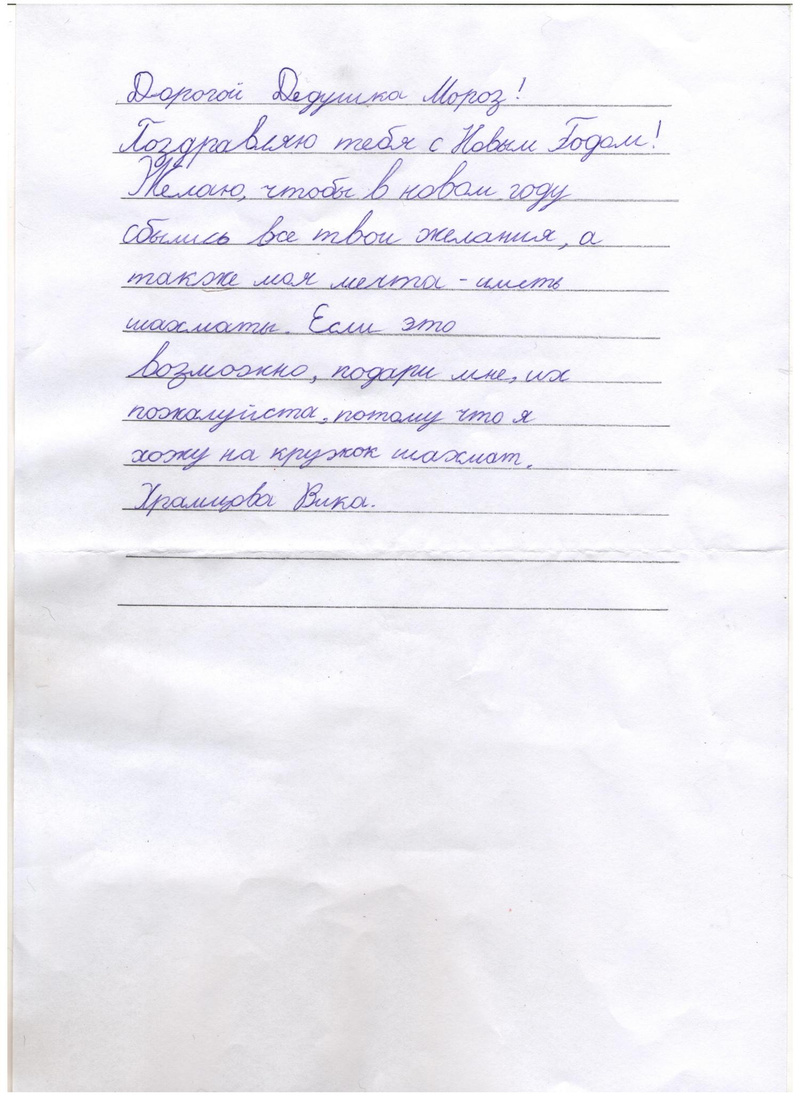 Дорогой Дедушка Мороз!
Поздравляю тебя с Новым Годом!
Желаю, чтобы в новом году
сбылись все твои желания, а
также моя мечта - иметь
шахматы. Если это
возможно, подари мне, их
пожалуйста, потому что я
хожу на кружок шахмат.
Храмцова Вика.